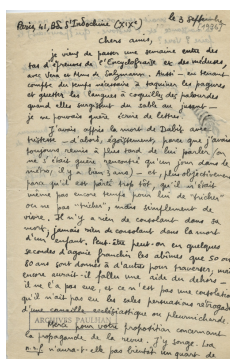 Paris, 41, Bd. d'Indochine (XIXe)
le 3 septembre
[1936]
Chers amis,
je viens de passer une semaine entre des
tas d'épreuves de l'Encyclopédie et des méduses,
avec Vera et Mme de Salzmann. Aussi — en tenant
compte du temps nécessaire à taquiner les pagures
et guetter les langues à coquilles des palourdes
quand elles surgissent du sable en jasant —
je ne pouvais guère écrire de lettre.
J'avais appris la mort de Dabit avec
tristesse d'abord, égoïstement, parce que j'avais
toujours remis à plus tard de lui parler (je
ne l'avais guère rencontré qu'un jour dans le
métro, il y a bien 3 ans) — et, plus objectivement
parce qu'il est parti trop tôt, qu'il n'était
même pas encore temps pour lui de "tricher"
ou ne pas "tricher", mais simplement de
vivre. Il n'y a rien de consolant dans sa
mort, jamais rien de consolant dans la mort
d'un enfant. Peut-être peut-on en quelques
secondes d'agonie franchir les abîmes que 50 ou
60 ans sont donnés à d'autres pour traverser, mais
encore aurait-il fallu une aide du dehors —
il ne l'a pas eue, et ce n'est pas une consolation
qu'il n'ait pas eu les sales persuasions
d'une canaille ecclésiastique ou pleurnicharde.
Merci pour votre proposition concernant
la propagande de la revue. J'y songe.
n'aura-t-elle pas bientôt un quart de
ARCHIVES PAULHAN